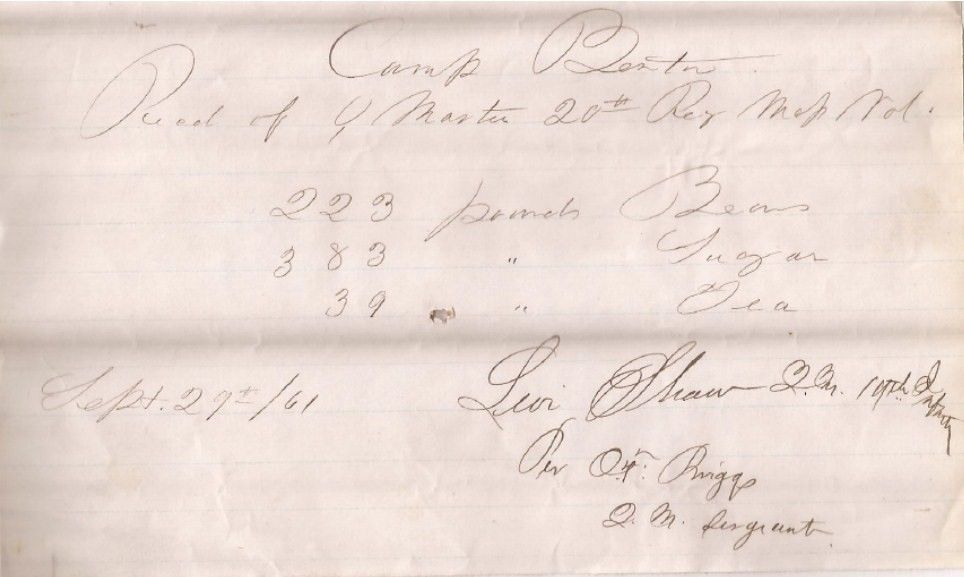 Camp Benton.
Recd of Q Master 20th Reg Mass Vol.
223 pounds Beans
383 " Sugar
39 " Tea
Sept. 29th/61
Levi Shaw Q.M. 19th Infantry
Per O.F. Briggs
Q.M. Sergeant.